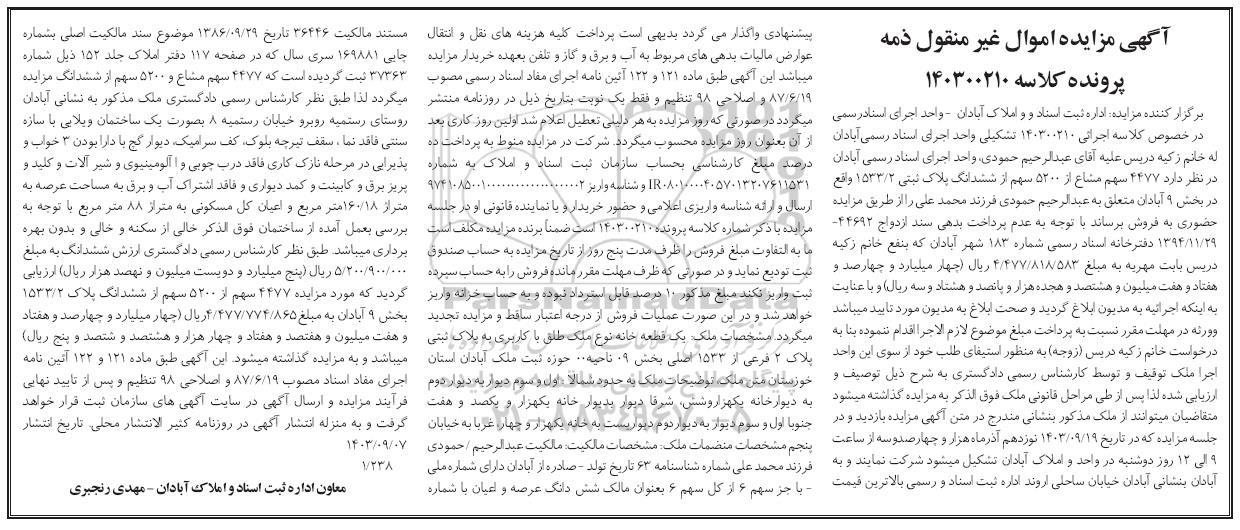 آگهی مزایده اموال غیر منقول ذمه
پرونده کلاسه ۱۴۰۳۰۰۲۱۰
برگزار کننده مزایده: اداره ثبت اسناد و و املاک آبادان - واحد اجرای اسنادرسمی
در خصوص کلاسه اجرائی ۱۴۰۳۰۰۲۱۰ تشکیلی واحد اجرای اسناد رسمی آبادان
له خانم زکیه دریس علیه آقای عبدالرحیم حمودی، واحد اجرای اسناد رسمی آبادان
در نظر دارد ۴۴۷۷ سهم مشاع از ۵۲۰۰ سهم از ششدانگ پلاک ثبتی ۱۵۳۳/۲ واقع
در بخش ۹ آبادان متعلق به عبدالرحیم حمودی فرزند محمد علی را از طریق مزایده
حضوری به فروش برساند با توجه به عدم پرداخت بدهی سند ازدواج ۴۴۶۹۲-
۱۳۹۴/۱۱/۲۹ دفترخانه اسناد رسمی شماره ۱۸۳ شهر آبادان که بنفع خانم زکیه
دریس بابت مهریه به مبلغ ۴/۴۷۷/۸۱۸/۵۸۳ ریال (چهار میلیارد و چهارصد و
هفتاد و هفت میلیون و هشتصد و هجده هزار و پانصد و هشتاد و سه ریال) و با عنایت
به اینکه اجرائیه به مدیون ابلاغ گردید و صحت ابلاغ به مدیون مورد تایید میباشد
وورثه در مهلت مقرر نسبت به پرداخت مبلغ موضوع لازم الاجرا اقدام ننموده بنا به
درخواست خانم زکیه دریس (زوجه) به منظور استیفای طلب خود از سوی این واحد
اجرا ملک توقیف و توسط کارشناس رسمی دادگستری به شرح ذیل توصیف و
ارزیابی شده لذا پس از طی مراحل قانونی ملک فوق الذکر به مزایده گذاشته میشود
متقاضیان میتوانند از ملک مذکور بنشانی مندرج در متن آگهی مزایده بازدید و در
جلسه مزایده که در تاریخ ۱۴۰۳/۰۹/۱۹ نوزدهم آذرماه هزار و چهارصدوسه از ساعت
۹ الی ۱۲ روز دوشنبه در واحد و املاک آبادان تشکیل میشود شرکت نمایند و به
آبادان بنشانی آبادان خیابان ساحلی اروند اداره ثبت اسناد و رسمی بالاترین قیمت
پیشنهادی واگذار می گردد بدیهی است پرداخت کلیه هزینه های نقل و انتقال
عوارض مالیات بدهی های مربوط به آب و برق و گاز و تلفن بعهده خریدار مزایده
میباشد این آگهی طبق ماده ۱۲۱ و ۱۲۲ آئین نامه اجرای مفاد اسناد رسمی مصوب
۸۷/۶/۱۹ و اصلاحی ۹۸ تنظیم و فقط یک نوبت بتاریخ ذیل در روزنامه منتشر
میگردد در صورتی که روز مزایده به هر دلیلی تعطیل اعلام شد اولین روز کاری بعد
از آن بعنوان روز مزایده محسوب میگردد. شرکت در مزایده منوط به پرداخت ده
درصد مبلغ کارشناسی بحساب سازمان ثبت اسناد و املاک به شماره
ارسال و ارائه شناسه واریزی اعلامی و حضور خریدار و یا نماینده قانونی او در جلسه
مزایده با ذکر شماره کلاسه پرونده ۱۴۰۳۰۰۲۱۰ است ضمناً برنده مزایده مکلف است
ما به التفاوت مبلغ فروش را ظرف مدت پنج روز از تاریخ مزایده به حساب صندوق
ثبت تودیع نماید و در صورتی که ظرف مهلت مقرر مانده فروش را به حساب سپرده
ثبت واریز نکند مبلغ مذکور ۱۰ درصد قابل استرداد نبوده و به حساب خزانه واریز
خواهد شد و در این صورت عملیات فروش از درجه اعتبار ساقط و مزایده تجدید
میگردد. مشخصات ملک: یک قطعه خانه نوع ملک طلق با کاربری به پلاک ثبتی
پلاک ۲ فرعی از ۱۵۳۳ اصلی بخش ۰۹ ناحیه ۰۰ حوزه ثبت ملک آبادان استان
خوزستان متن ملک: توضیحات ملک به حدود شمالا: اول و سوم دیوار به دیوار دوم
به دیوارخانه یکهزاروشش، شرقا دیوار بدیوار خانه یکهزار و یکصد و هفت
جنوبا اول و سوم دیوار به دیوار دوم دیواریست به خانه یکهزار و چهار، غربا به خیابان
پنجم مشخصات منضمات ملک: مشخصات مالکیت: مالکیت عبدالرحیم / حمودی
فرزند محمد علی شماره شناسنامه ۶۳ تاریخ تولد - صادره از آبادان دارای شماره ملی
- با جز سهم ۶ از کل سهم ۶ بعنوان مالک شش دانگ عرصه و اعیان با شماره
مستند مالکیت ۳۶۴۴۶ تاریخ ۱۳۸۶/۰۹/۲۹ موضوع سند مالکیت اصلی بشماره
چاپی ۱۶۹۸۸۱ سری سال که در صفحه ۱۱۷ دفتر املاک جلد ۱۵۲ ذیل شماره
۳۷۳۶۳ ثبت گردیده است که ۴۴۷۷ سهم مشاع و ۵۲۰۰ سهم از ششدانگ مزایده
میگردد لذا طبق نظر کارشناس رسمی دادگستری ملک مذکور به نشانی آبادان
روستای رستمیه روبرو خیابان رستمیه ۸ بصورت یک ساختمان ویلایی با سازه
سنتی فاقد نما ، سقف تیرچه بلوک، کف سرامیک، دیوار گچ با دارا بودن ۳ خواب و
پذیرایی در مرحله نازک کاری فاقد درب چوبی و آلومینیوی و شیر آلات و کلید و
پریز برق و کابینت و کمد دیواری و فاقد اشتراک آب و برق به مساحت عرصه به
متراژ ۱۶۰/۱۸متر مربع و اعیان کل مسکونی به متراژ ۸۸ متر مربع با توجه به
بررسی بعمل آمده از ساختمان فوق الذکر خالی از سکنه و خالی و بدون بهره
برداری میباشد. طبق نظر کارشناس رسمی دادگستری ارزش ششدانگ به مبلغ
۵/۲۰۰/۹۰۰/۰۰۰ ریال (پنج میلیارد و دویست میلیون و نهصد هزار ریال) ارزیابی
گردید که مورد مزایده ۴۴۷۷ سهم از ۵۲۰۰ سهم از ششدانگ پلاک ۱۵۳۳/۲
بخش ۹ آبادان به مبلغ ۴/۴۷۷/۷۷۴/۸۶۵ریال (چهار میلیارد و چهارصد و هفتاد
و هفت میلیون و هفتصد و هفتاد و چهار هزار و هشتصد و شتصد و پنج ریال)
میباشد و به مزایده گذاشته میشود. این آگهی طبق ماده ۱۲۱ و ۱۲۲ آئین نامه
اجرای مفاد اسناد مصوب ۸۷/۶/۱۹ و اصلاحی ۹۸ تنظیم و پس از تایید نهایی
فرآیند مزایده و ارسال آگهی در سایت آگهی های سازمان ثبت قرار خواهد
گرفت و به منزله انتشار آگهی در روزنامه کثیر الانتشار محلی. تاریخ انتشار
۱۴۰۳/۰۹/۰۷
۱/۲۳۸
معاون اداره ثبت اسناد و املاک آبادان - مهدی رنجبری